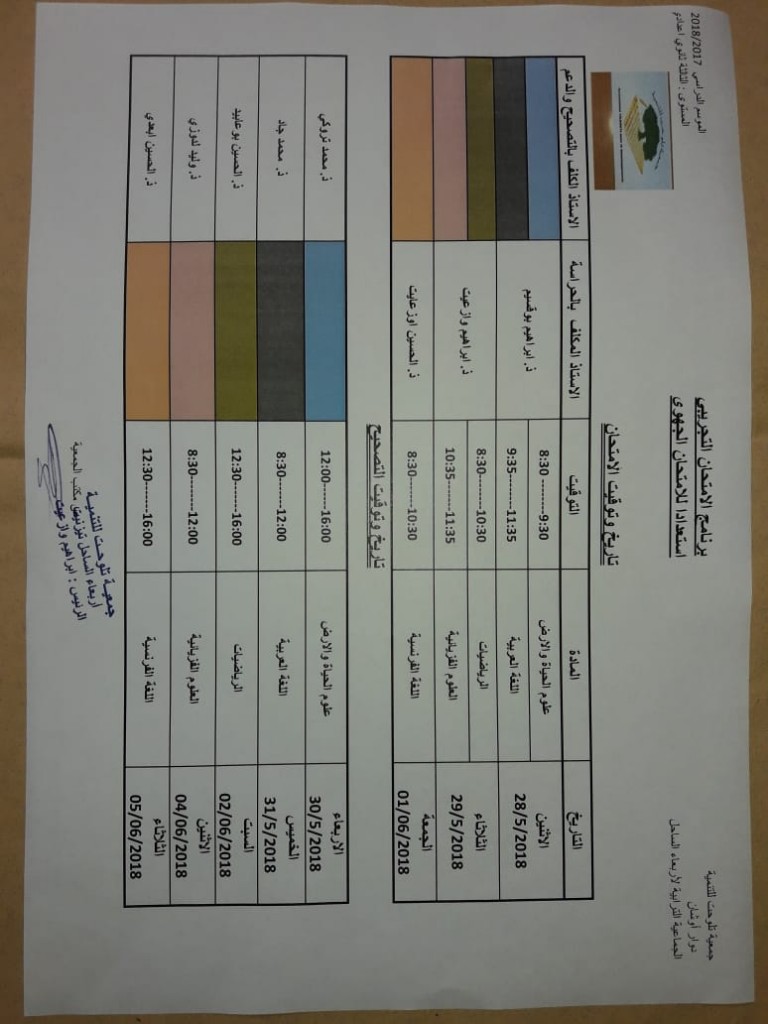 جمعية تلوحت للتنمية
دوار أوشان
الجماعية الترابية لاربعاء الساحل
الموسم الدراسي 2018/2017
المستوى : الثالثة ثانوي اعدادي
برنامج الامتحان التجريبي
استعدادا للامتحان الجهوي
تاريخ وتوقيت الامتحان
التاريخ المادة التوقيت الاستاذ المكلف بالحراسة الاستاذ الكلف بالتصحيح والدعم
الاثنين 28/5/2018 علوم الحياة والارض 8:30 ---------9:30 ذ. ابراهيم بوقسيم
اللغة العربية 9:35-------11:35
الثلاثاء 29/5/2018 الرياضيات 8:30-------10:30 ذ. ابراهيم وازعيت
العلوم الفزيائية 10:35------11:35
الجمعة 01/06/2018 اللغة الفرنسية 8:30-------10:30 ذ. الحسين اوزعايت
تاريخ وتوقيت التصحيح
الاربعاء 30/5/2018 علوم الحياة والارض 12:00-------16:00 ذ. محمد تروكي
الخميس 31/5/2018 اللغة العربية 8:30-------12:00 ذ. محمد جاد
السبت 02/06/2018 الرياضيات 12:30-------16:00 ذ. الحسين بوعابيد
الاثنين 04/06/2018 العلوم الفزيائية 8:30-------12:00 ذ. وليد لدوزي
الثلاثاء 05/06/2018 اللغة الفرنسية 12:30-------16:00 ذ. الحسين ابعدي
مكتب الجمعية
جمعية تلوحت للتنمية
اربعاء الساحل تيزنيت
الرئيس : ابراهيم وازعيت